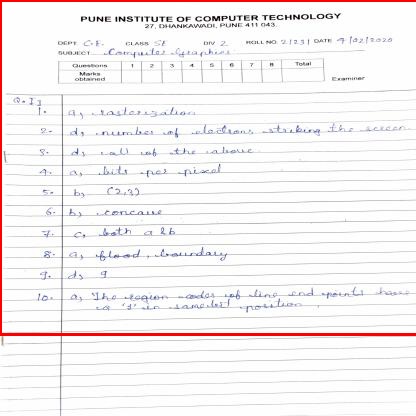 PUNE INSTITUTE OF COMPUTER TECHNOLOGY
27, DHANKAWADI, PUNE 411 043.
DEPT. C.E. CLASS SE DIV 2 ROLL NO. 21231 DATE 4/02/2020
SUBJECT Computer Graphics
Questions 1 2 3 4 5 6 7 8 Total
Marks obtained
Examiner
Q.I]
1. a) rasterization
2. d) number of electrons striking the screen
3. d) all of the above.
4. a) bits per pixel
5. b) (2,3)
6. b) concave
7. c) both a & b
8. a) flood, boundary
9. d) 9
10. a) The region codes of line end points have
a '1' in same bit position.